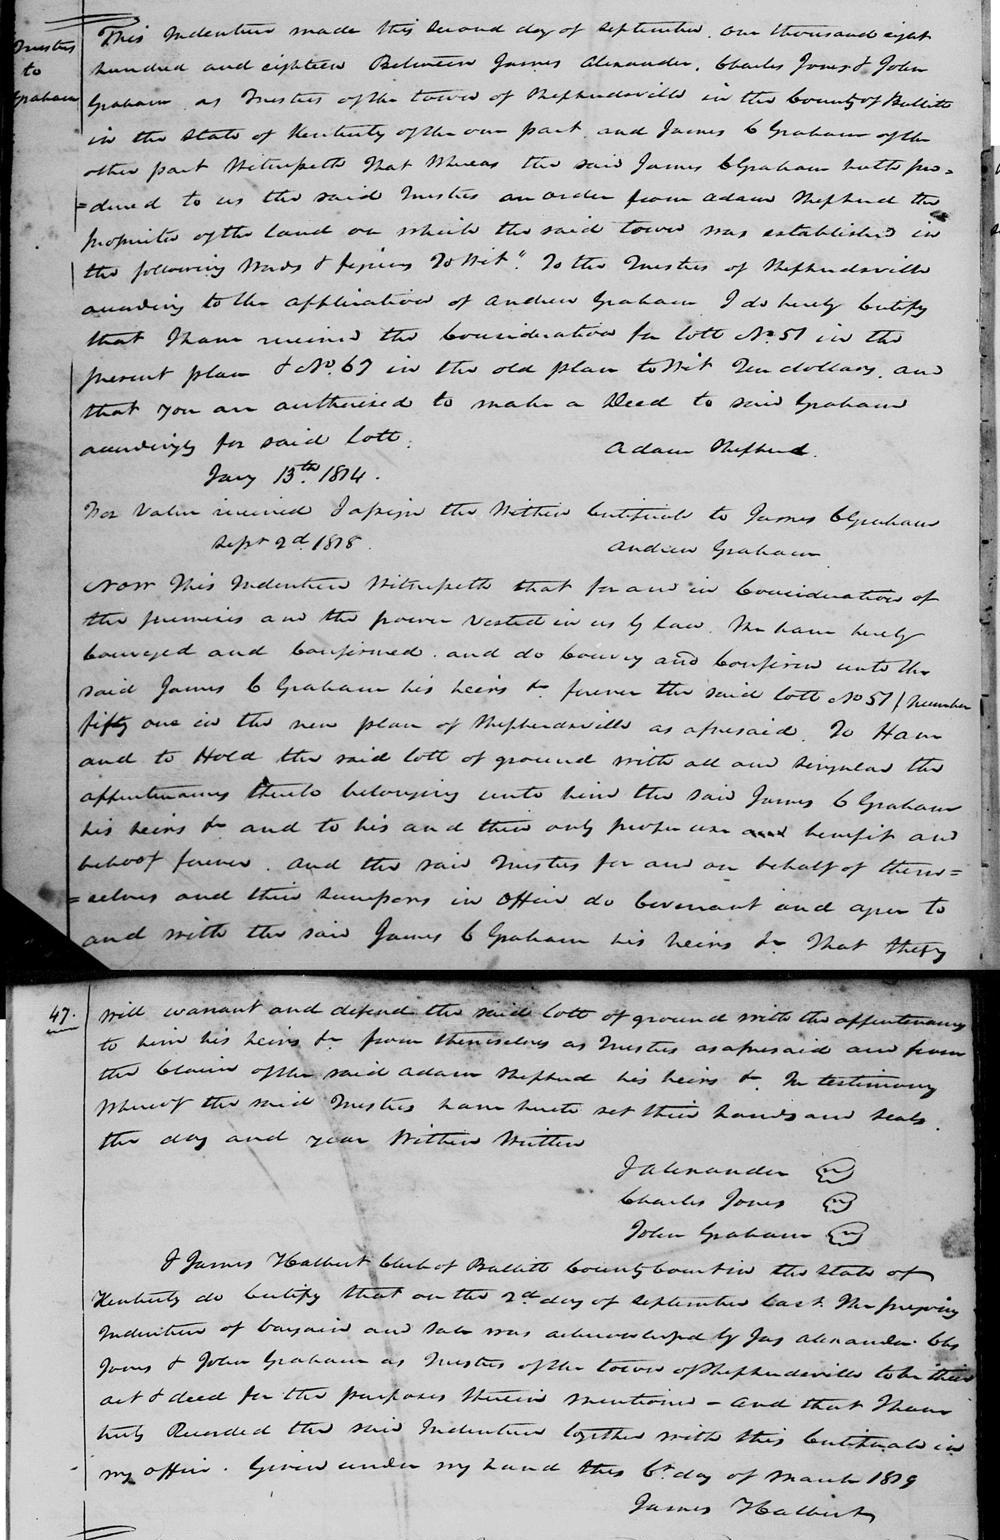 Trustees
to
Graham
This Indenture made this Second day of September, one thousand eight
hundred and eighteen Between James Alexander, Charles Jones & John
Graham as Trustees of the town of Shepherdsville in the County of Bullitt
in the State of Kentucky of the one part and James C Graham of the
other part Witnesseth That Whereas the said James C Graham hath pro=
=duced to us the said Trustees an order from Adam Shepherd the
proprietor of the land on which the said town was established in
the following Words & figures To Wit " To the Trustees of Shepherdsville
according to the application of Andrew Graham I do hereby Certify
that I have received the Consideration for lott No. 51 in the
present plan & No. 67 in the old plan to Wit Ten dollars, and
that you are authorised to make a Deed to said Graham
accordingly for said lott.
Adam Shepherd.
Jany 13th 1814.
For Value received I assign the Within Certificate to James C Graham
Sept 2d. 1818.
Andrew Graham
Now This Indenture Witnesseth that for and in Consideration of
the premises and the power Vested in us by law. We have hereby
Conveyed and Confirmed. and do Convey and Confirm unto the
said James C Graham his heirs &c forever the said lott No 51 / Number
fifty one in the new plan of Shepherdsville as aforesaid. To Have
and to Hold the said lott of ground with all and singular the
appurtenances thereto belonging unto him the said James C Graham
his heirs &c and to his and their only proper use and benefit and
behoof forever. And the said Trustees for and on behalf of them=
=selves and their successors in Office do Covenant and agree to
and with the said James C Graham his heirs &c That they
47.
will warrant and defend the said lott of ground with the appurtenances
to him his heirs &c from themselves as Trustees as aforesaid and from
the Claim of the said Adam Shepherd his heirs &c. In testimony
Whereof the said Trustees have hereto set their hands and seals.
the day and year Within Written
J Alexander
Charles Jones
John Graham
I James Halbert Clerk of Bullitt County Court in the State of
Kentucky do Certify that on the 2d. day of September last. The foregoing
Indenture of bargain and sale was acknowledged by Jas Alexander. Chs
Jones & John Graham as Trustees of the town of Shepherdsville to be their
act & deed for the purposes therein mentioned - and that I have
truly Recorded the said Indenture together with this Certificate in
my office. Given under my hand this 6th day of March 1819
James Halbert